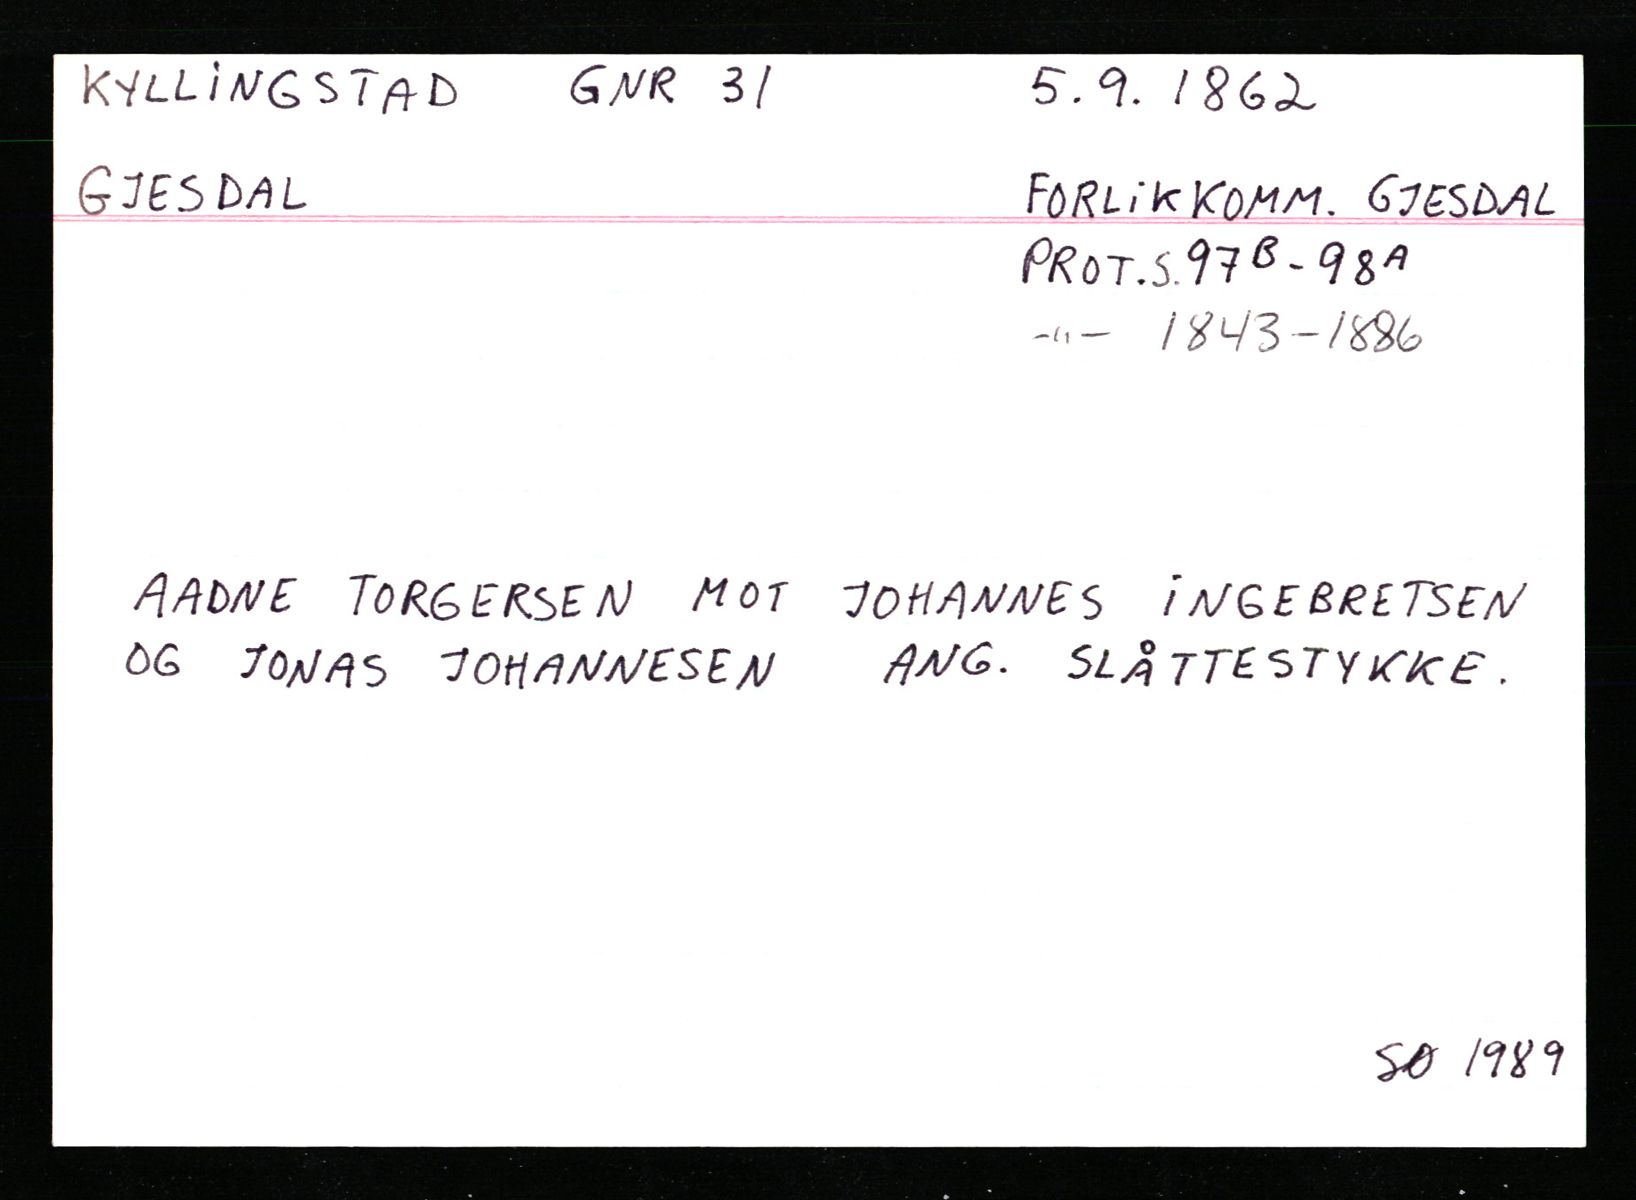 KYLLINGSTAD GNR 31 5.9.1862
GJESDAL FORLIKKOMM. GJESDAL
PROT.S.97B-98A
-"- 1843-1886
AADNE TORGERSEN MOT JOHANNES INGEBRETSEN
OG JONAS JOHANNESEN ANG. SLÅTTESTYKKE.
SØ 1989